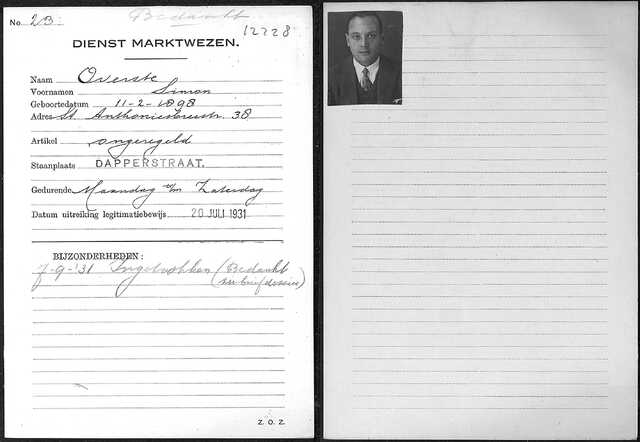 No. 23.
Bedankt
12228
DIENST MARKTWEZEN.
Naam Overste
Voornamen Simon
Geboortedatum 11-2-1898
Adres St. Anthoniesbreestr. 38
Artikel ongeregeld
Staanplaats DAPPERSTRAAT.
Gedurende Maandag t/m Zaterdag
Datum uitreiking legitimatiebewijs 20 JULI 1931
BIJZONDERHEDEN:
7-9-'31 Ingetrokken (Bedankt
zie brief dossier)
Z. O. Z.